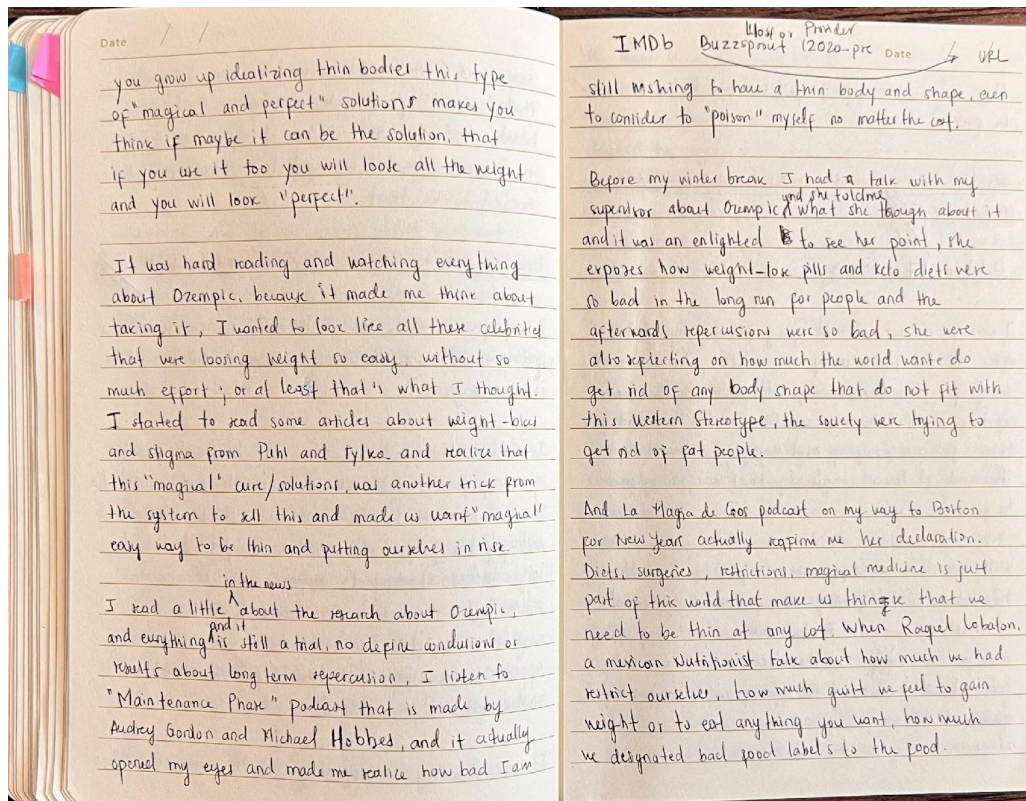 Date / /
you grow up idealizing thin bodies this type
of "magical and perfect" solutions makes you
think if maybe it can be the solution, that
if you use it too you will loose all the weight
and you will look "perfect".
It was hard reading and watching everything
about Ozempic, because it made me think about
taking it, I wanted to look like all these celebrities
that were loosing weight so easy, without so
much effort; or at least that's what I thought.
I started to read some articles about weight-bias
and stigma from Puhl and Tylka and realize that
this "magical" cure/solutions, was another trick from
the system to sell this and made us want "magical"
easy way to be thin and putting ourselves in risk.
in the news
I read a little about the research about Ozempic,
and it
and everything is still a trial, no define conclutions or
results about long term repercusion, I listen to
"Maintenance Phase" podcast that is made by
Audrey Gordon and Michael Hobbes, and it actually
opened my eyes and made me realice how bad I am
Host or Provider
IMDb Buzzsprout (2020-pre Date URL
still wishing to have a thin body and shape, even
to consider to "poison" myself no matter the cost.
Before my winter break I had a talk with my
and she told me
supervisor about Ozempic what she though about it
and it was an enlighted to see her point, she
exposes how weight-lose pills and keto diets were
so bad in the long run for people and the
afterwards repercusions were so bad, she were
also reflecting on how much the world wante do
get rid of any body shape that do not fit with
this Western Stereotype, the society were trying to
get rid of fat people.
And La Magia de Caos podcast on my way to Boston
for New Years actually her declaration.
Diets, surgeries, restrictions, magical medicine is just
part of this world that make us think that we
need to be thin at any cost. When Raquel Lobaton,
a mexican Nutritionist talk about how much we had
restrict ourselves, how much guilt we feel to gain
weight or to eat anything you want, how much
we designated bad good labels to the food.